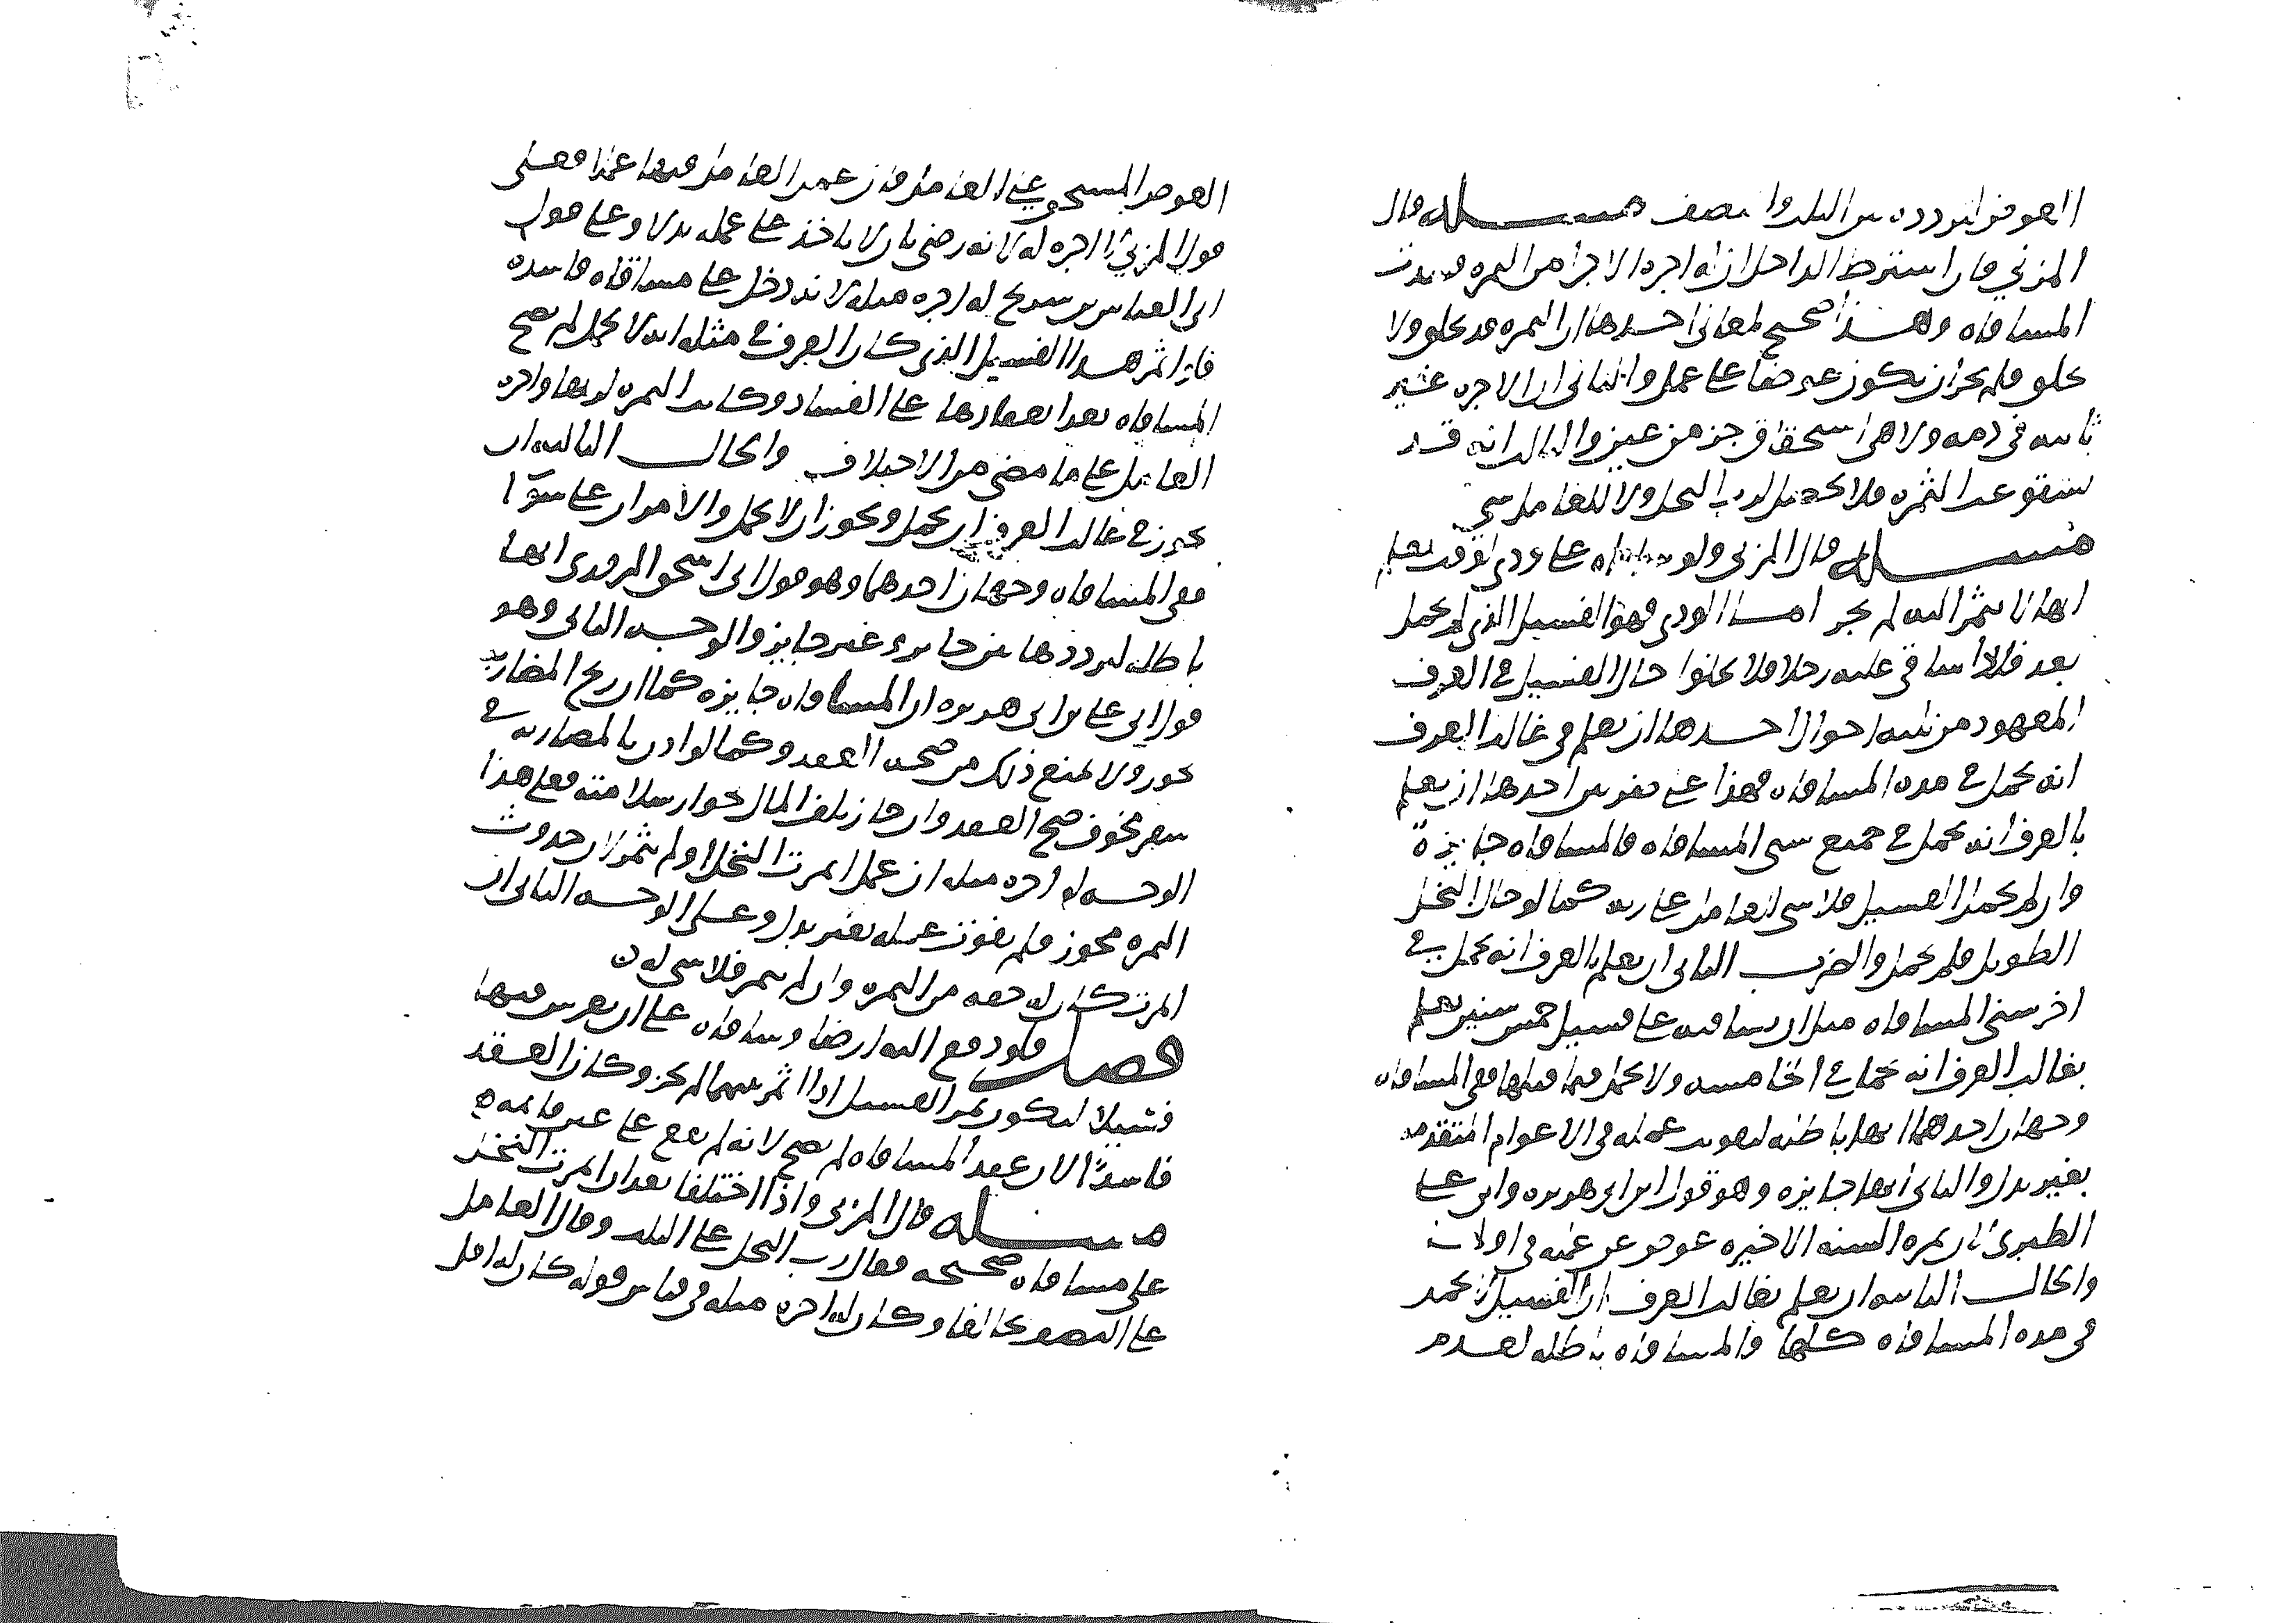 العوض لتردده بين الثلث والنصف مسله قال
المزني فان اشترط الداخل ان له اجره الاجرا من الثمره فسدت
المساقاه وهذا صحيح لمعاني احدها ان الثمره قد تخلق ولا
تخلق فلم يجز ان تكون عوضا على عمل والثاني ان الاجره غير
ثابته في ذمه ولا هي استحقاق جز من عين والثالث انه قد
يستوعب الثمره فلا يحصل لرب النخل ولا للعامل شي
مسله قال المزني ولو ساقاه على ودي لوقت يعلم
انها لا تثمر اليه لم يجز اما الودي فهو الفسيل الذي لم يحمل
بعد فاذا ساقى عليه رجلا فلا يخلوا حال الفسيل في العرف
المعهود من ثلثه احوال احدها ان يعلم في غالب العرف
انه يحمل في مده المساقاه فهذا على ضربين احدهما ان يعلم
بالعرف انه يحمل في جميع سني المساقاه فالمساقاه جايزة
وان لم يحمل الفسيل فلا شي للعامل على ربه كما لو حال النخل
الطويل فلم يحمل والضرب الثاني ان يعلم بالعرف انه يحمل في
اخر سني المساقاه مثل ان يساقيه على فسيل خمس سنين يعلم
بغالب العرف انه يحمل في الخامسه ولا يحمل فيما قبلها ففي المساقاه
وجهان احدهما انها باطله لتفويت عمله في الاعوام المتقدمه
بغير بدل والثاني انها جايزه وهو قول ابن ابي هريره وابي علي
الطبري لان ثمره السنه الاخيره عوض عن عمله في اولات
والحال الثانيه ان يعلم بغالب العرف ان الفسيل لا يحمل
في مده المساقاه كلها فالمساقاه باطله لعدم
العوض المستحق على العامل فان عمل العامل فيها عملا فعلى
قول المزني لا اجره له لانه رضي بان لا ياخذ على عمله بدلا وعلى قول
ابي العباس بن سريج له اجره مثله لانه دخل على مساقاه فاسده
فان اثمر هذا الفسيل الذي كان العرف في مثله انه لا يحمل لم تصح
المساقاه بعد انعقادها على الفساد وكانت الثمره لربها واجره
العامل على ما مضى من الاختلاف والحال الثالثه ان
يجوز في غالب العرف ان يحمل ويجوز ان لا يحمل والامران على سوا
ففي المساقاه وجهان احدهما وهو قول ابي اسحق المروزي انها
باطله لترددها بين جايز وغير جايز والوجه الثاني وهو
قول ابي علي بن ابي هريره ان المساقاه جايزه كما ان ربح المضاربه
يجوز ولا يمنع ذلك من صحه العقد وكما لو اذن بالمضاربه في
سفر مخوف صح العقد وان جاز تلف المال لجواز سلامته فعلى هذا
الوجه له اجره مثله ان عمل اثمرت النخل او لم تثمر لان حدوث
الثمره مجوز فلم يفوت عمله بغير بدل وعلى الوجه الثاني ان
اثمرت كان له حقه من الثمره وان لم تثمر فلا شي له
فصل فلو دفع اليه ارضا وساقاه على ان يغرس فيها
فسيلا ليكون ثمر الفسيل اذا اثمر بينهما لم يجز وكان العقد
فاسدا لان عقد المساقاه لم يصح لانه لم يقع على عين قايمه
مسله قال المزني واذا اختلفا بعد ان اثمرت النخل
على مساقاه صحيحه فقال رب النخل على الثلث وقال العامل
على النصف تحالفا وكان له اجره مثله في قياس قوله كان له اقل